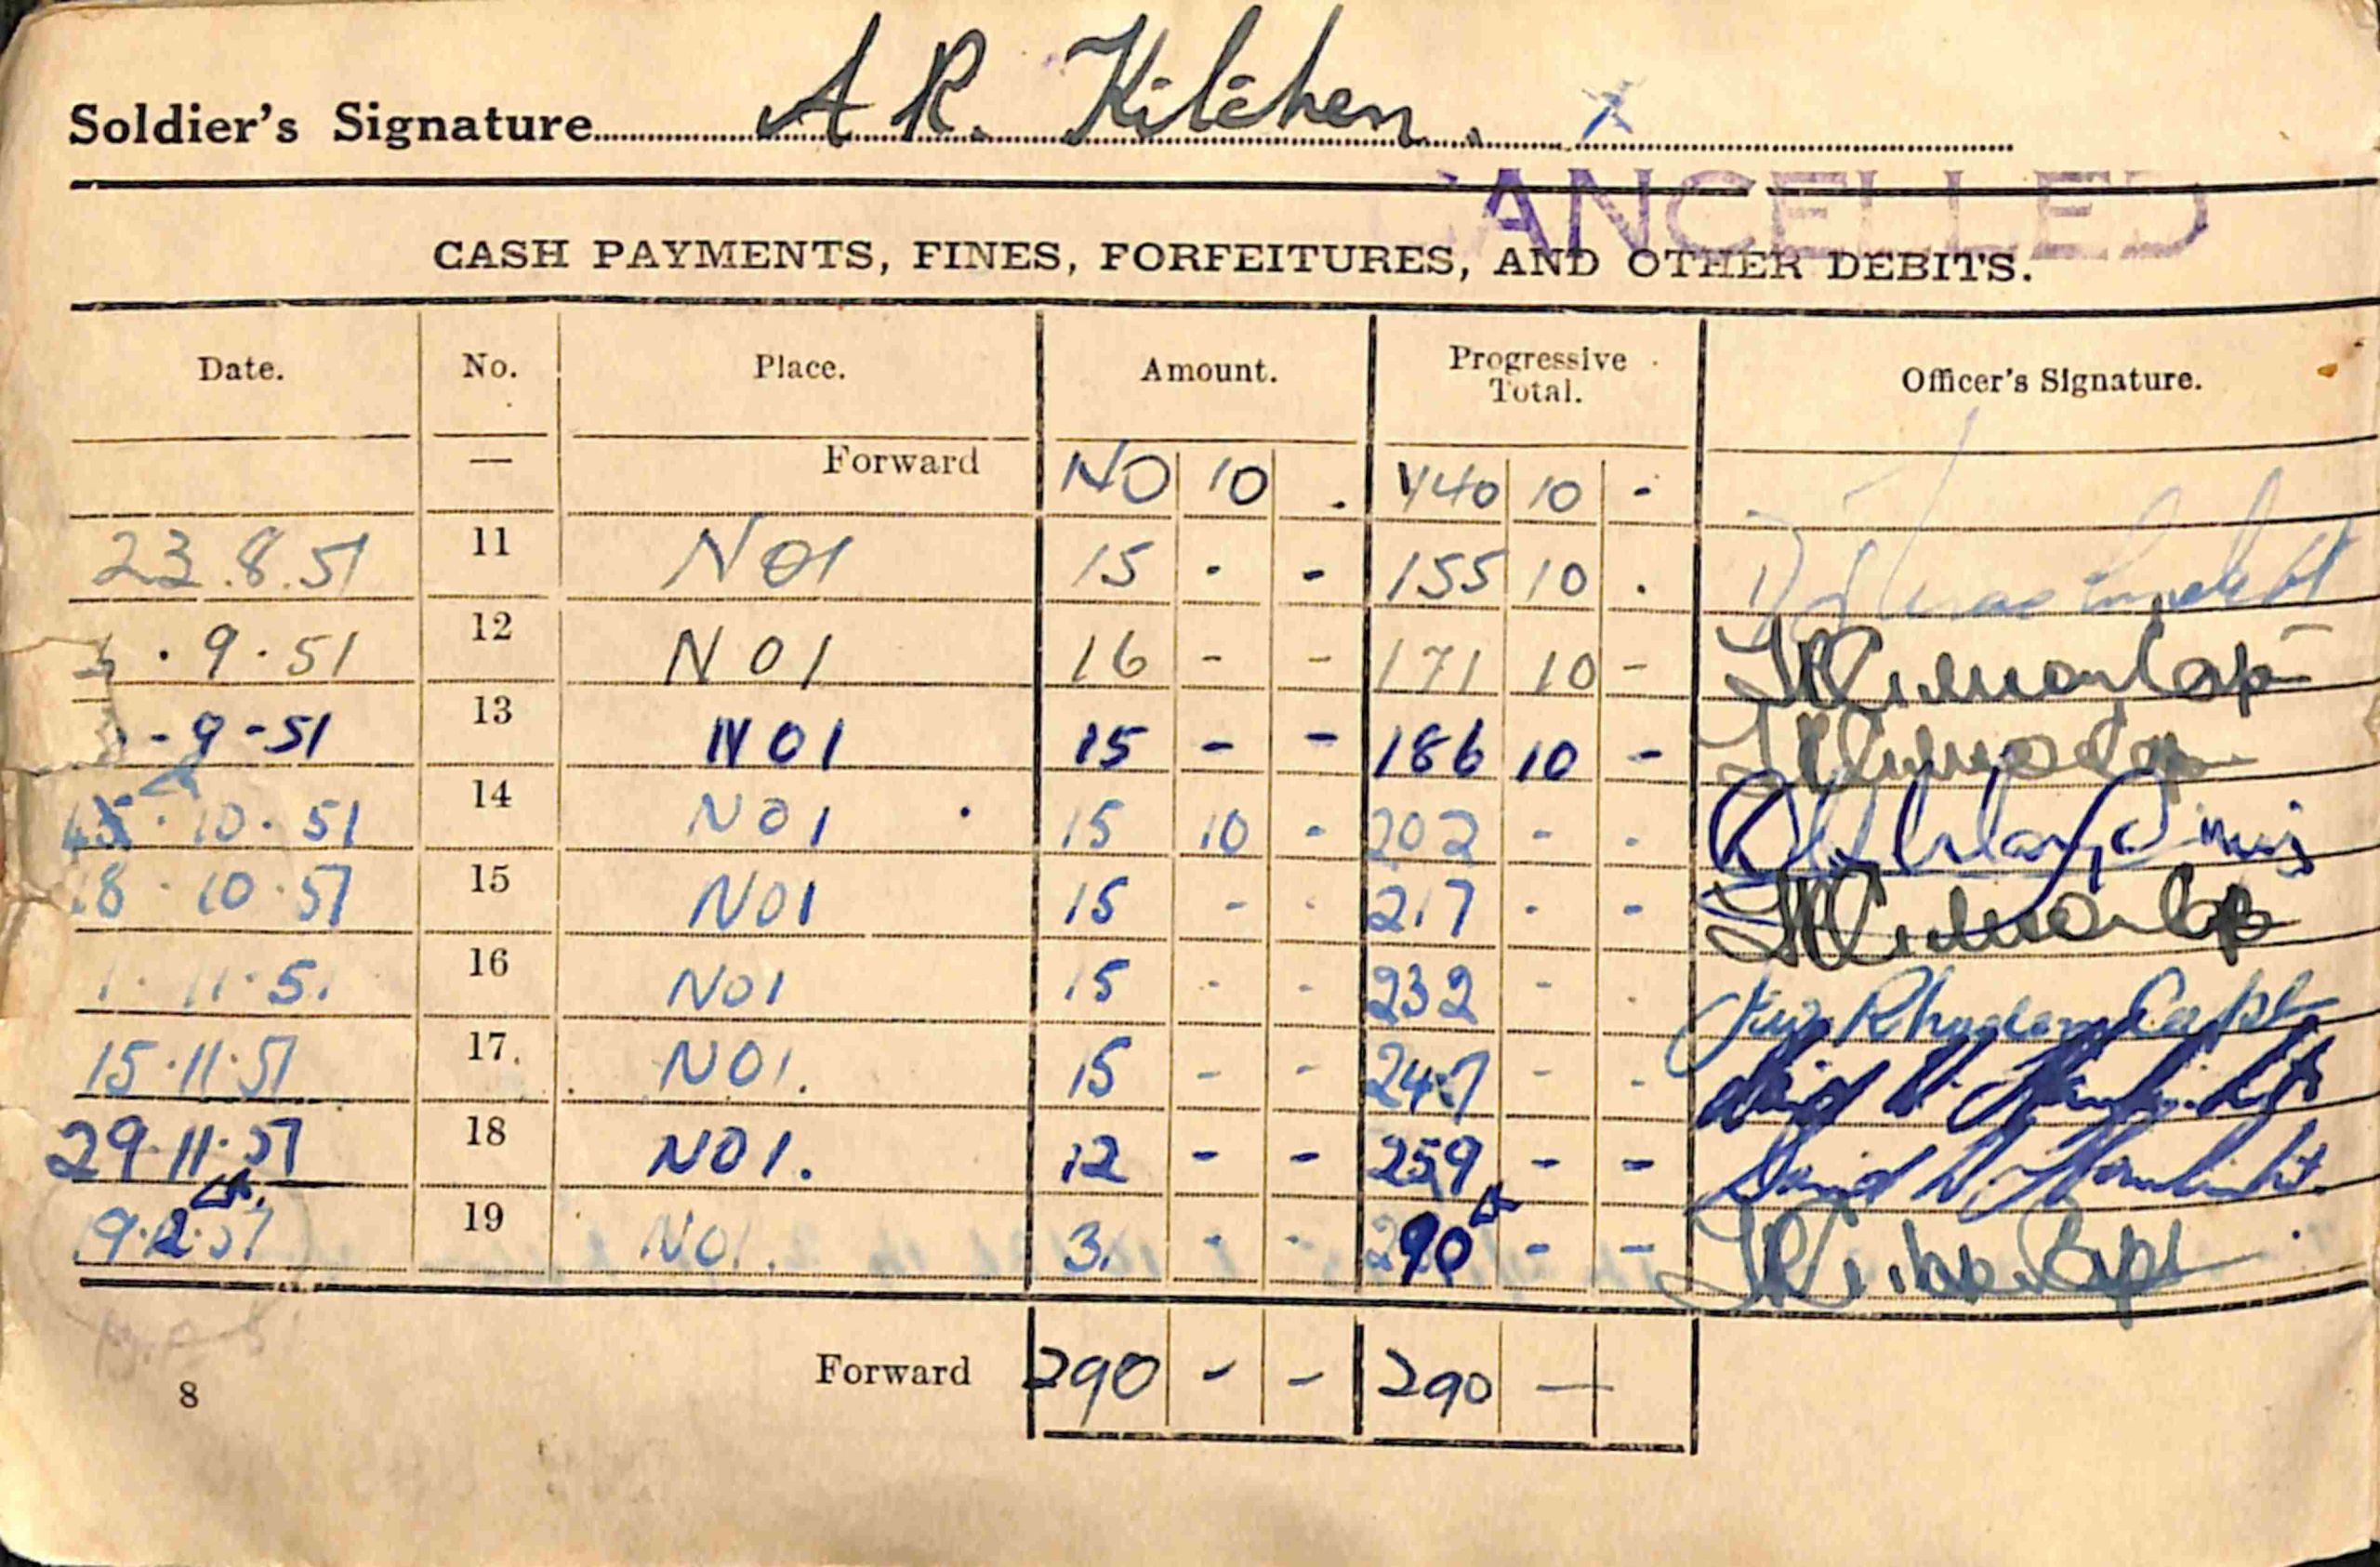 Soldier's Signature A R. Kitchen. x
CANCELLED
CASH PAYMENTS, FINES, FORFEITURES, AND OTHER DEBITS.
Date. No. Place. Amount. Progressive Total. Officer's Signature.
— Forward 140 10 . 140 10 -
23.8.51 11 N01 15 - - 155 10 .
. 9 . 51 12 N01 16 - - 171 10 -
- 9 - 51 13 N01 15 - - 186 10 -
. 10 . 51 14 N01 15 10 - 202 - -
18 . 10 . 51 15 N01 15 - - 217 - -
1 . 11 . 51 16 N01 15 - - 232 - - Capt
15.11.51 17. N01. 15 - - 247 - -
29.11.51 18 N01. 12 - - 259 - - David W.
19 N01. 3. - - 290 - - Capt
Forward 290 - - 290 —
8